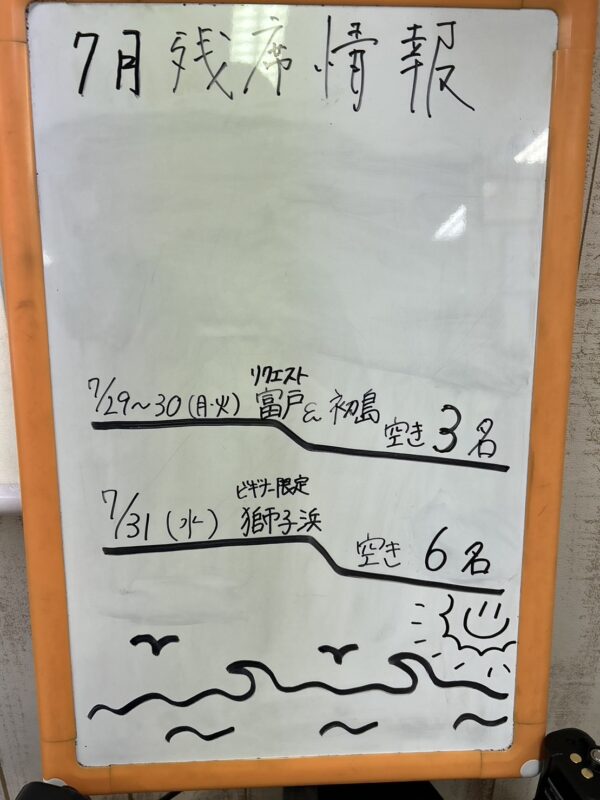 7月残席情報
リクエスト
7/29〜30(月・火) 富戸&初島 空き3名
ビギナー限定
7/31(水) 獅子浜 空き6名